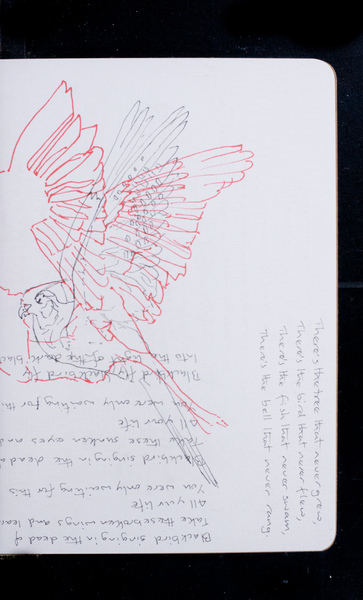 There's the tree that never grew,
There's the bird that never flew,
There's the fish that never swam,
There's the bell that never rang.
Blackbird singing in the dead of
Take these broken wings and lear
All your life
You were only waiting for this
Blackbird singing in the dead o
Take these sunken eyes and
All your life
You were only waiting for th
Blackbird fly blackbird fly
Into the light of the dark blac